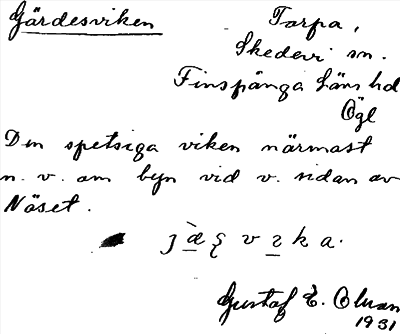 Gärdesviken
Torpa,
Skedevi sn.
Finspånga läns hd
Ögl
Den spetsiga viken närmast
n. v. om byn vid v. sidan av
Näset.
Gustaf E. Olsson
1931